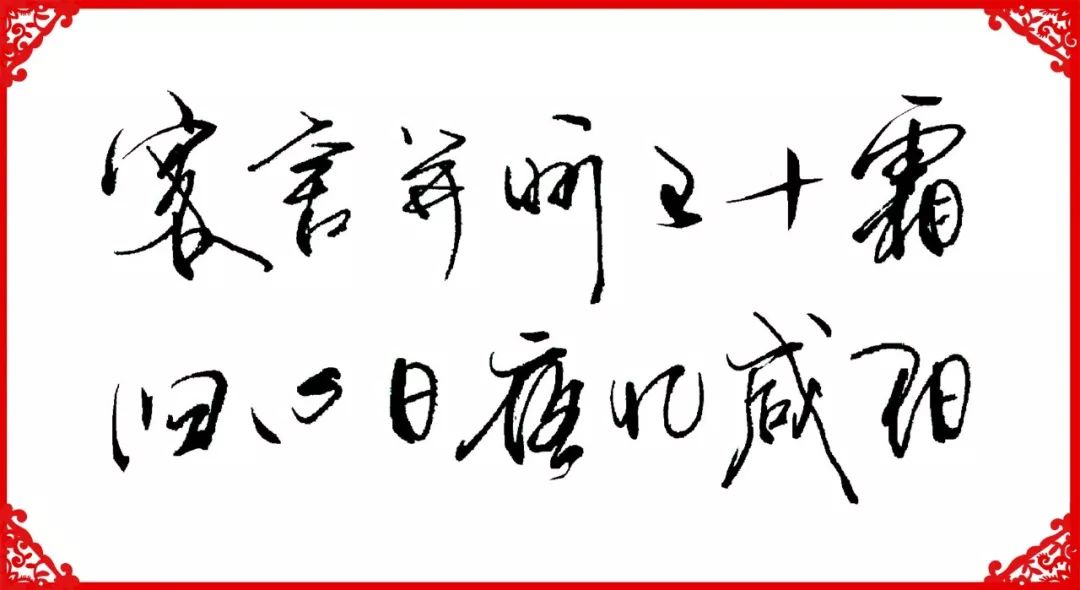 客舍并州已十霜
归心日夜忆咸阳